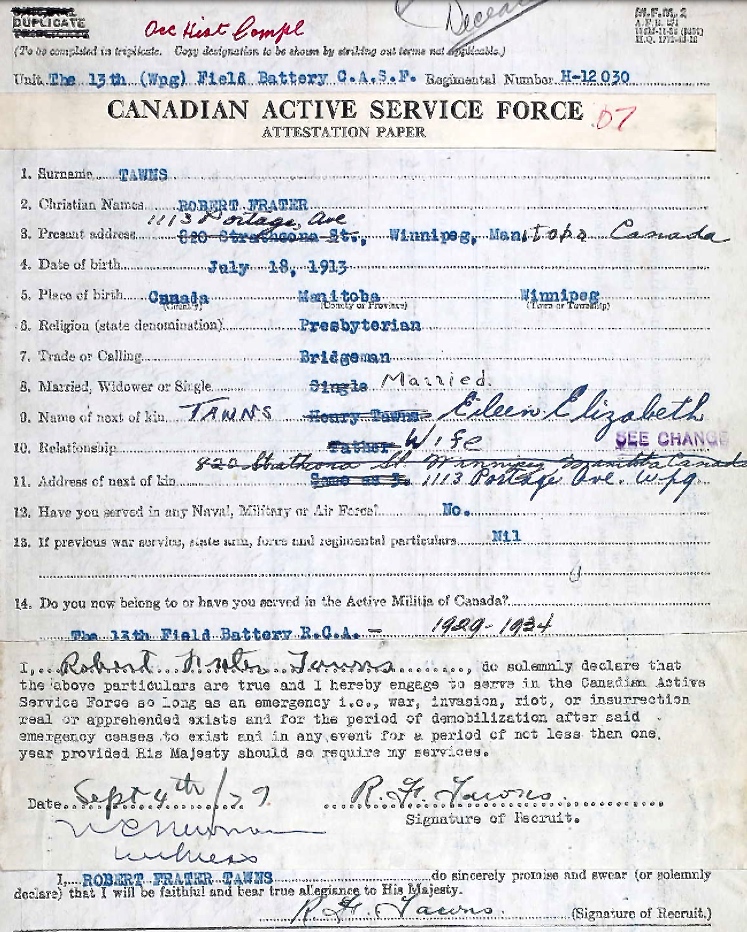 DUPLICATE
Occ Hist Compl
Deceas
M.F.M. 2
(To be completed in triplicate. Copy designation to be shown by striking out terms not applicable.)
Unit The 13th (Wpg) Field Battery C.A.S.F. Regimental Number H-12030
CANADIAN ACTIVE SERVICE FORCE
ATTESTATION PAPER
1. Surname TAWNS
2. Christian Names ROBERT FRATER
1113 Portage Ave
3. Present address 820 Strathcona St., Winnipeg, Manitoba Canada
4. Date of birth July 18, 1913
5. Place of birth Canada Manitoba Winnipeg
(Country) (County or Province) (Town or Township)
6. Religion (state denomination) Presbyterian
7. Trade or Calling Bridgeman
8. Married, Widower or Single Single Married.
9. Name of next of kin TAWNS Henry Tawns Eileen Elizabeth
10. Relationship Father Wife SEE CHANGE
820 Strathcona St. Winnipeg Manitoba Canada
11. Address of next of kin Same as 3. 1113 Portage Ave. Wpg
12. Have you served in any Naval, Military or Air Force? No.
13. If previous war service, state arm, force and regimental particulars Nil
14. Do you now belong to or have you served in the Active Militia of Canada?
The 13th Field Battery R.C.A. - 1929-1934
I, Robert Frater Tawns, do solemnly declare that
the above particulars are true and I hereby engage to serve in the Canadian Active
Service Force so long as an emergency i.e., war, invasion, riot, or insurrection
real or apprehended exists and for the period of demobilization after said
emergency ceases to exist and in any event for a period of not less than one
year provided His Majesty should so require my services.
Date Sept 4th/39 R. F. Tawns
Signature of Recruit.
Witness
I, ROBERT FRATER TAWNS do sincerely promise and swear (or solemnly
declare) that I will be faithful and bear true allegiance to His Majesty.
R. F. Tawns. (Signature of Recruit.)